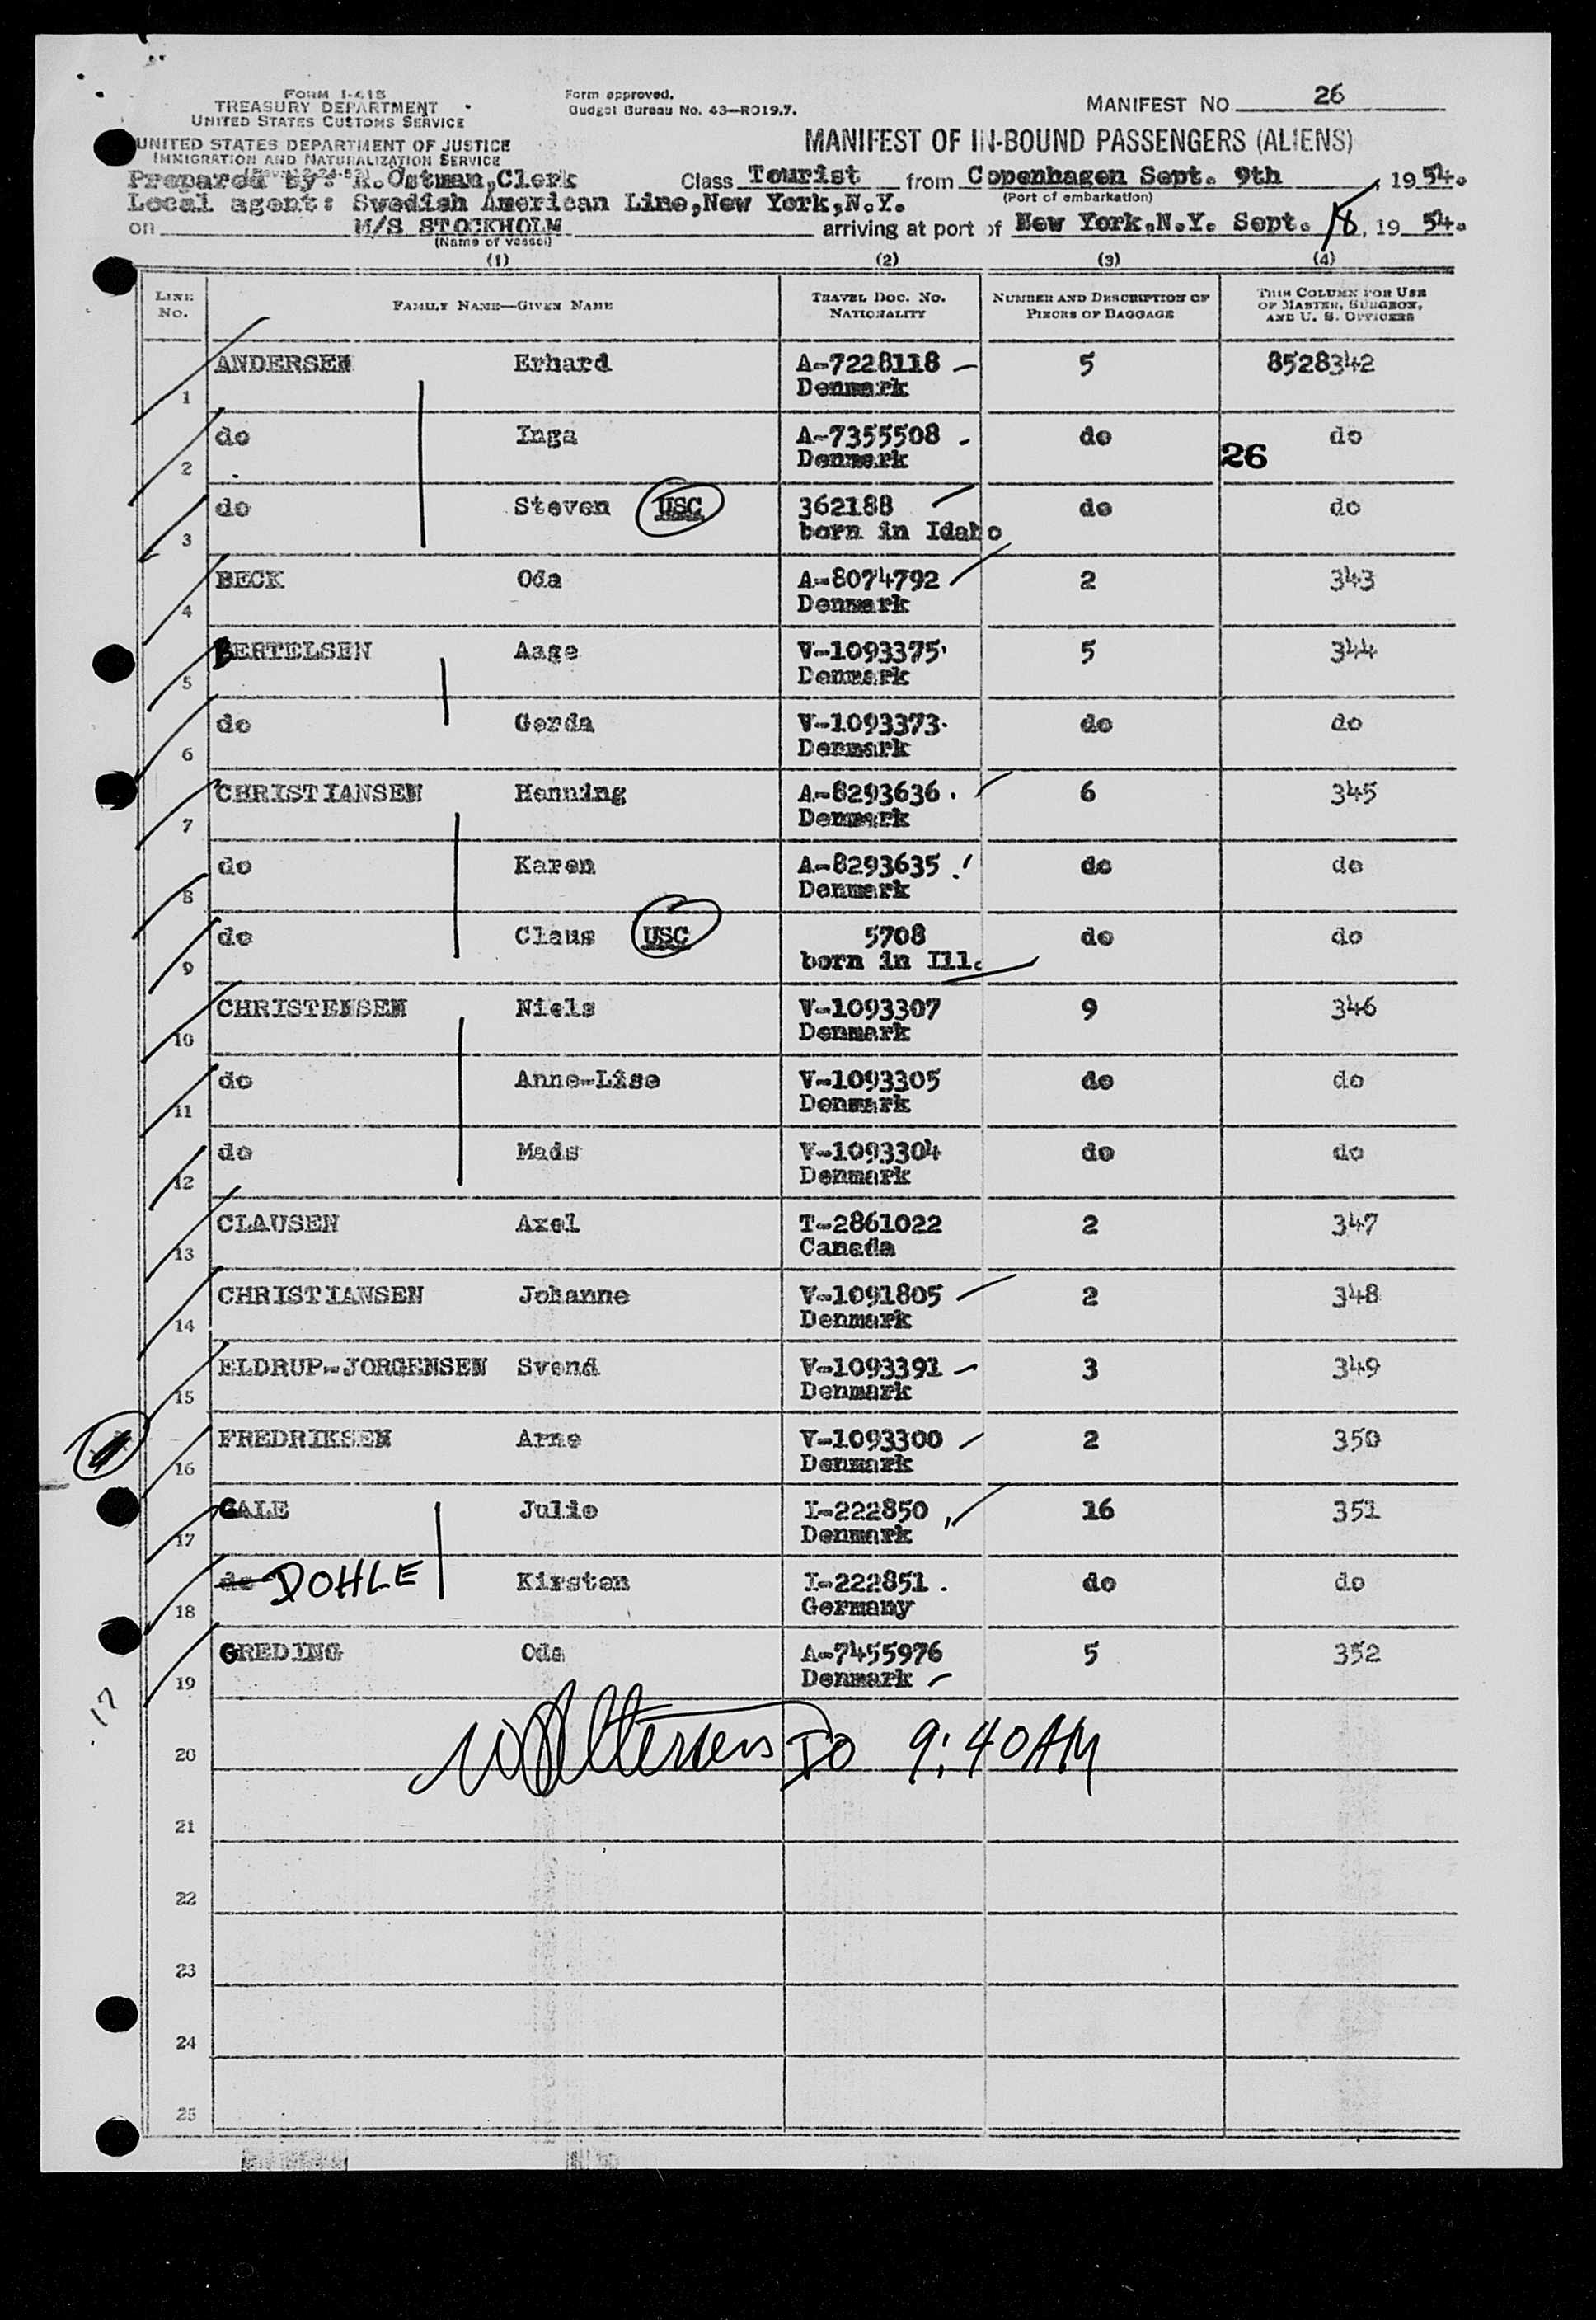 FORM I-415
TREASURY DEPARTMENT
UNITED STATES CUSTOMS SERVICE
UNITED STATES DEPARTMENT OF JUSTICE
IMMIGRATION AND NATURALIZATION SERVICE
Form approved.
Budget Bureau No. 43—R019.7.
MANIFEST NO. 26
MANIFEST OF IN-BOUND PASSENGERS (ALIENS)
Prepared by: K.Östman,Clerk Class Tourist from Copenhagen Sept. 9th, 1954.
(Port of embarkation)
Local agent: Swedish American Line,New York,N.Y.
on M/S STOCKHOLM arriving at port of New York,N.Y. Sept. 18, 1954.
(Name of vessel)
(1) (2) (3) (4)
LINE No. FAMILY NAME—GIVEN NAME TRAVEL DOC. NO. NATIONALITY NUMBER AND DESCRIPTION OF PIECES OF BAGGAGE THIS COLUMN FOR USE OF MASTER, SURGEON, AND U. S. OFFICERS
1 ANDERSEN Erhard A-7228118 5 8528342
Denmark
2 do Inga A-7355508 do do
Denmark 26
3 do Steven USC 362188 do do
born in Idaho
4 BECK Oda A-8074792 2 343
Denmark
5 BERTELSEN Aage V-1093375 5 344
Denmark
6 do Gerda V-1093373 do do
Denmark
7 CHRISTIANSEN Henning A-8293636 6 345
Denmark
8 do Karen A-8293635 do do
Denmark
9 do Claus USC 5708 do do
born in Ill.
10 CHRISTENSEN Niels V-1093307 9 346
Denmark
11 do Anne-Lise V-1093305 do do
Denmark
12 do Mads V-1093304 do do
Denmark
13 CLAUSEN Axel T-2861022 2 347
Canada
14 CHRISTIANSEN Johanne V-1091805 2 348
Denmark
15 ELDRUP-JORGENSEN Svend V-1093391 3 349
Denmark
16 FREDRIKSEN Arne V-1093300 2 350
Denmark
17 GALE Julie I-222850 16 351
Denmark
18 do DOHLE Kirsten I-222851 do do
Germany
19 GREDING Oda A-7455976 5 352
Denmark
17
20 IO 9:40AM
21
22
23
24
25